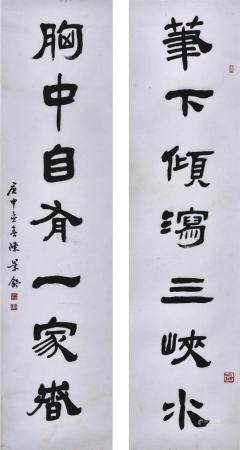 筆下傾瀉三峽水
胸中自有一家春
庚申立春陳景舒